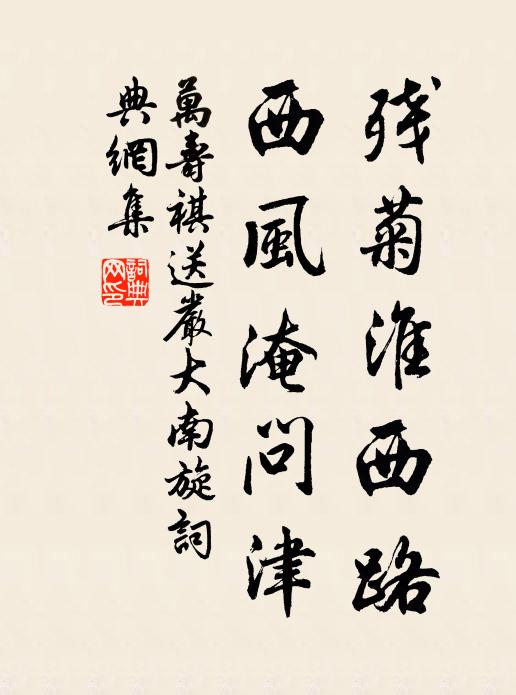 残菊淮西路
西風淹問津
萬壽祺送嚴大南旋詞
典網集
詞典
网印